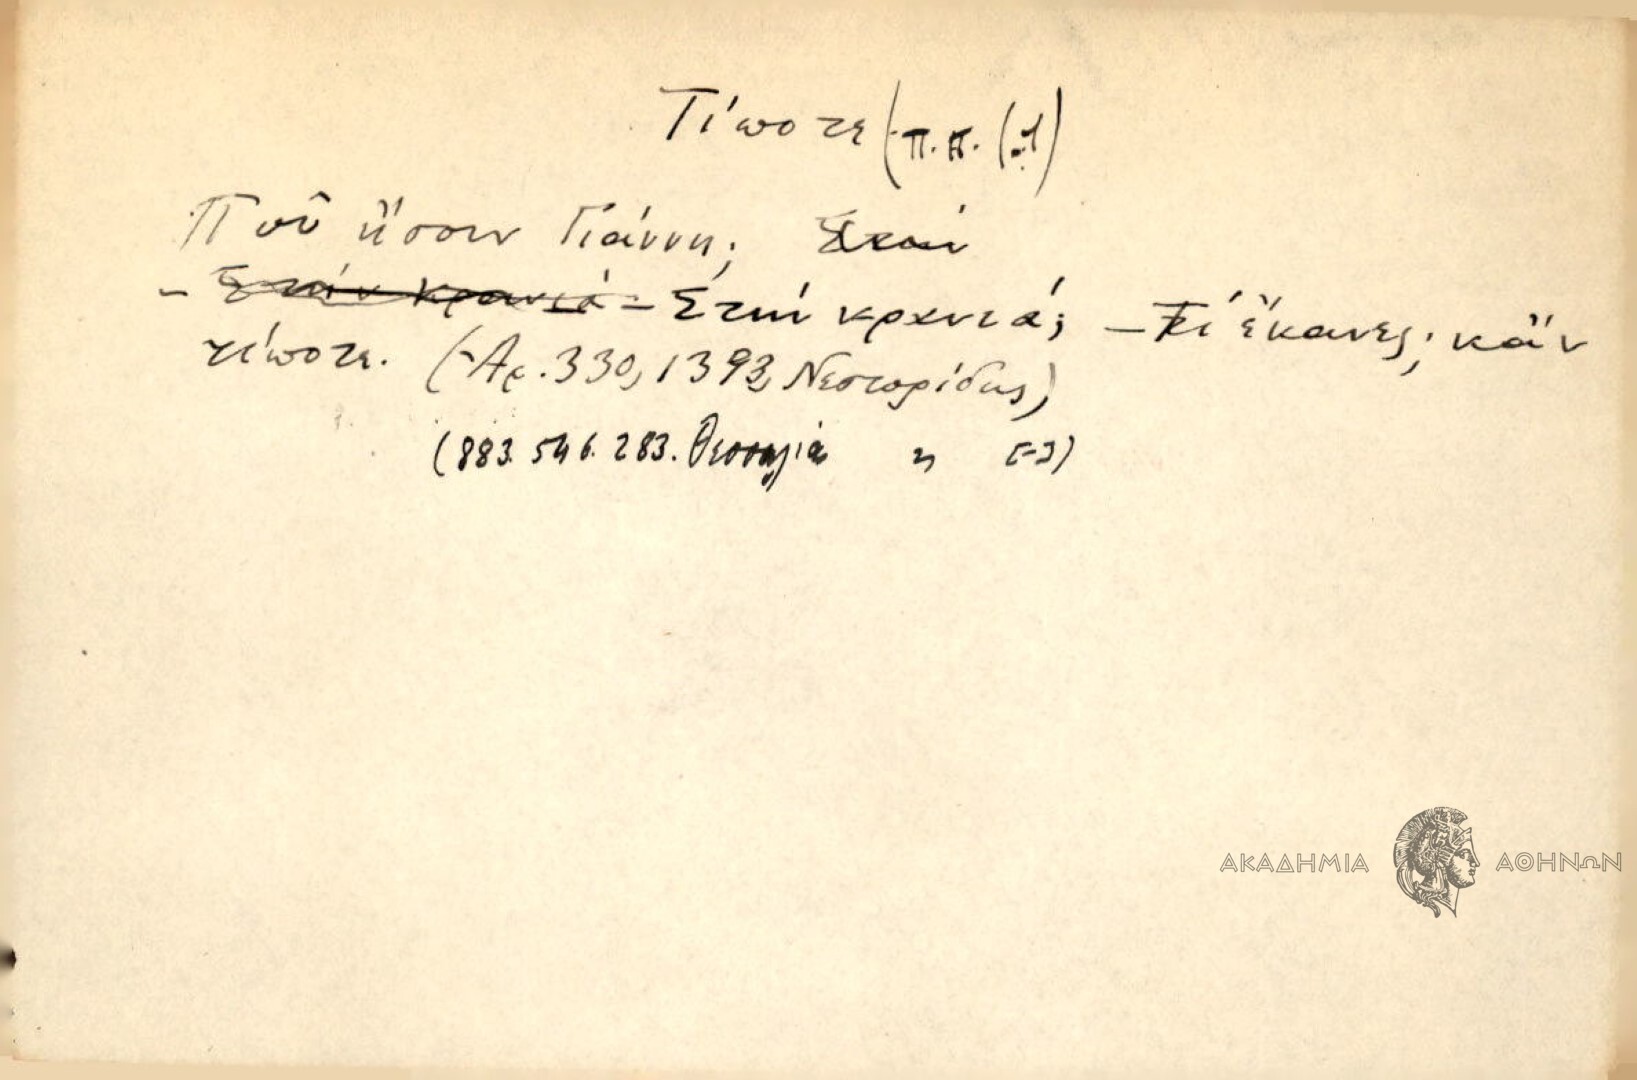 Τίποτε (π.π.
Ποῦ ἤσουν Γιάννη; Στὴν
- Στὴν κρανιά - Στὴν κρανιά; - Τί ἔκανες; κἂν
τίποτε. (Ἀρ. 330, 1393, Νεστορίδης)
(883. 546. 283. Θεσσαλία
ΑΚΑΔΗΜΙΑ ΑΘΗΝΩΝ